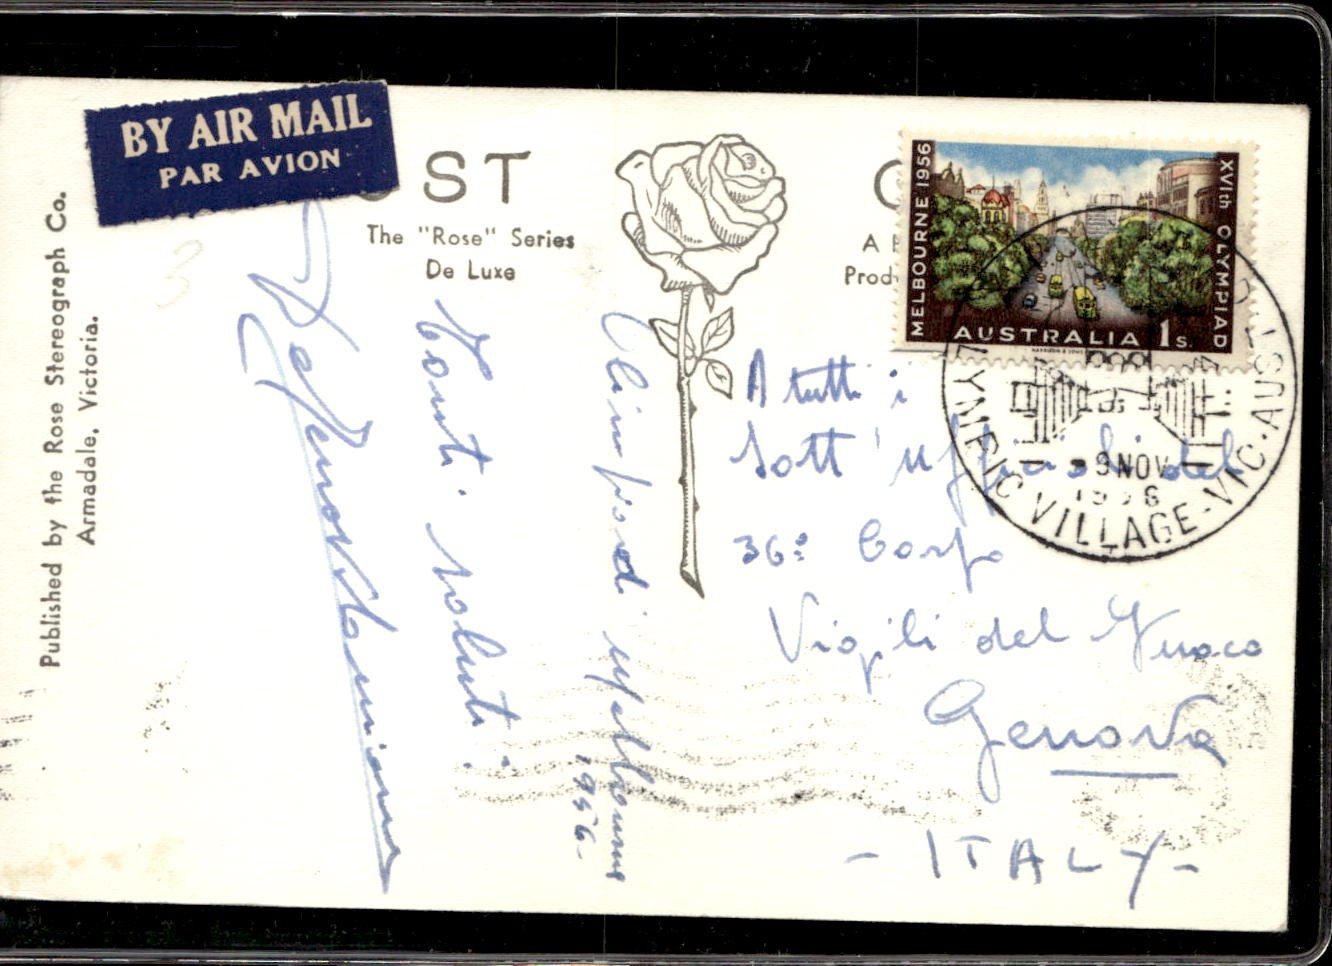 BY AIR MAIL
PAR AVION
ST
The "Rose" Series
De Luxe
A
Prod
MELBOURNE 1956
XVIth OLYMPIAD
AUSTRALIA 1s.
OLYMPIC VILLAGE-VIC.AUST
9 NOV
Published by the Rose Stereograph Co.
Armadale, Victoria.
Olimpiadi Melbourne
1956-
Tanti saluti.
A tutti i
Sott'ufficiali del
36° Corpo
Vigili del Fuoco
Genova
- ITALY -